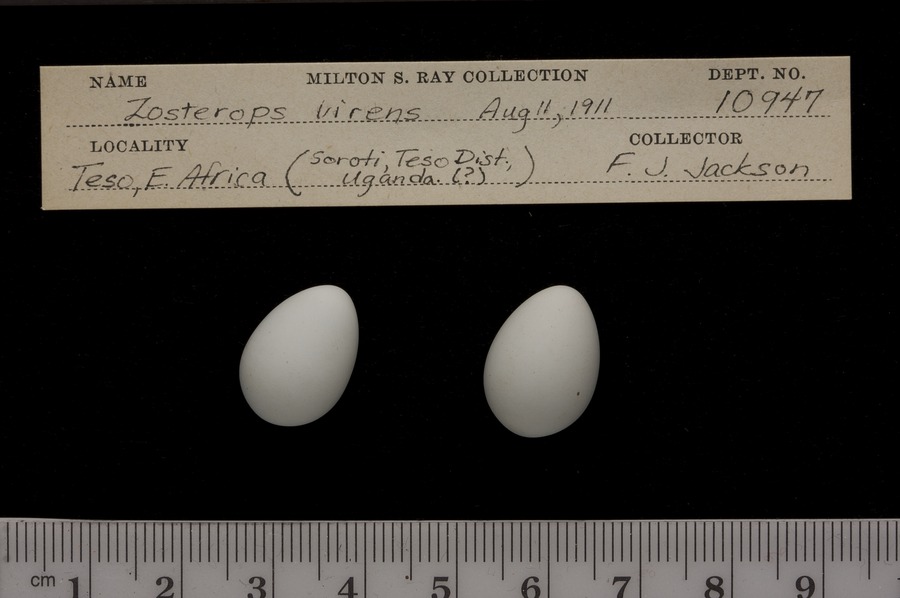 NAME MILTON S. RAY COLLECTION DEPT. NO.
Zosterops virens Aug 11, 1911 10947
LOCALITY COLLECTOR
Teso, E. Africa (Soroti, Teso Dist., Uganda. (?)) F. J. Jackson
cm 1 2 3 4 5 6 7 8 9